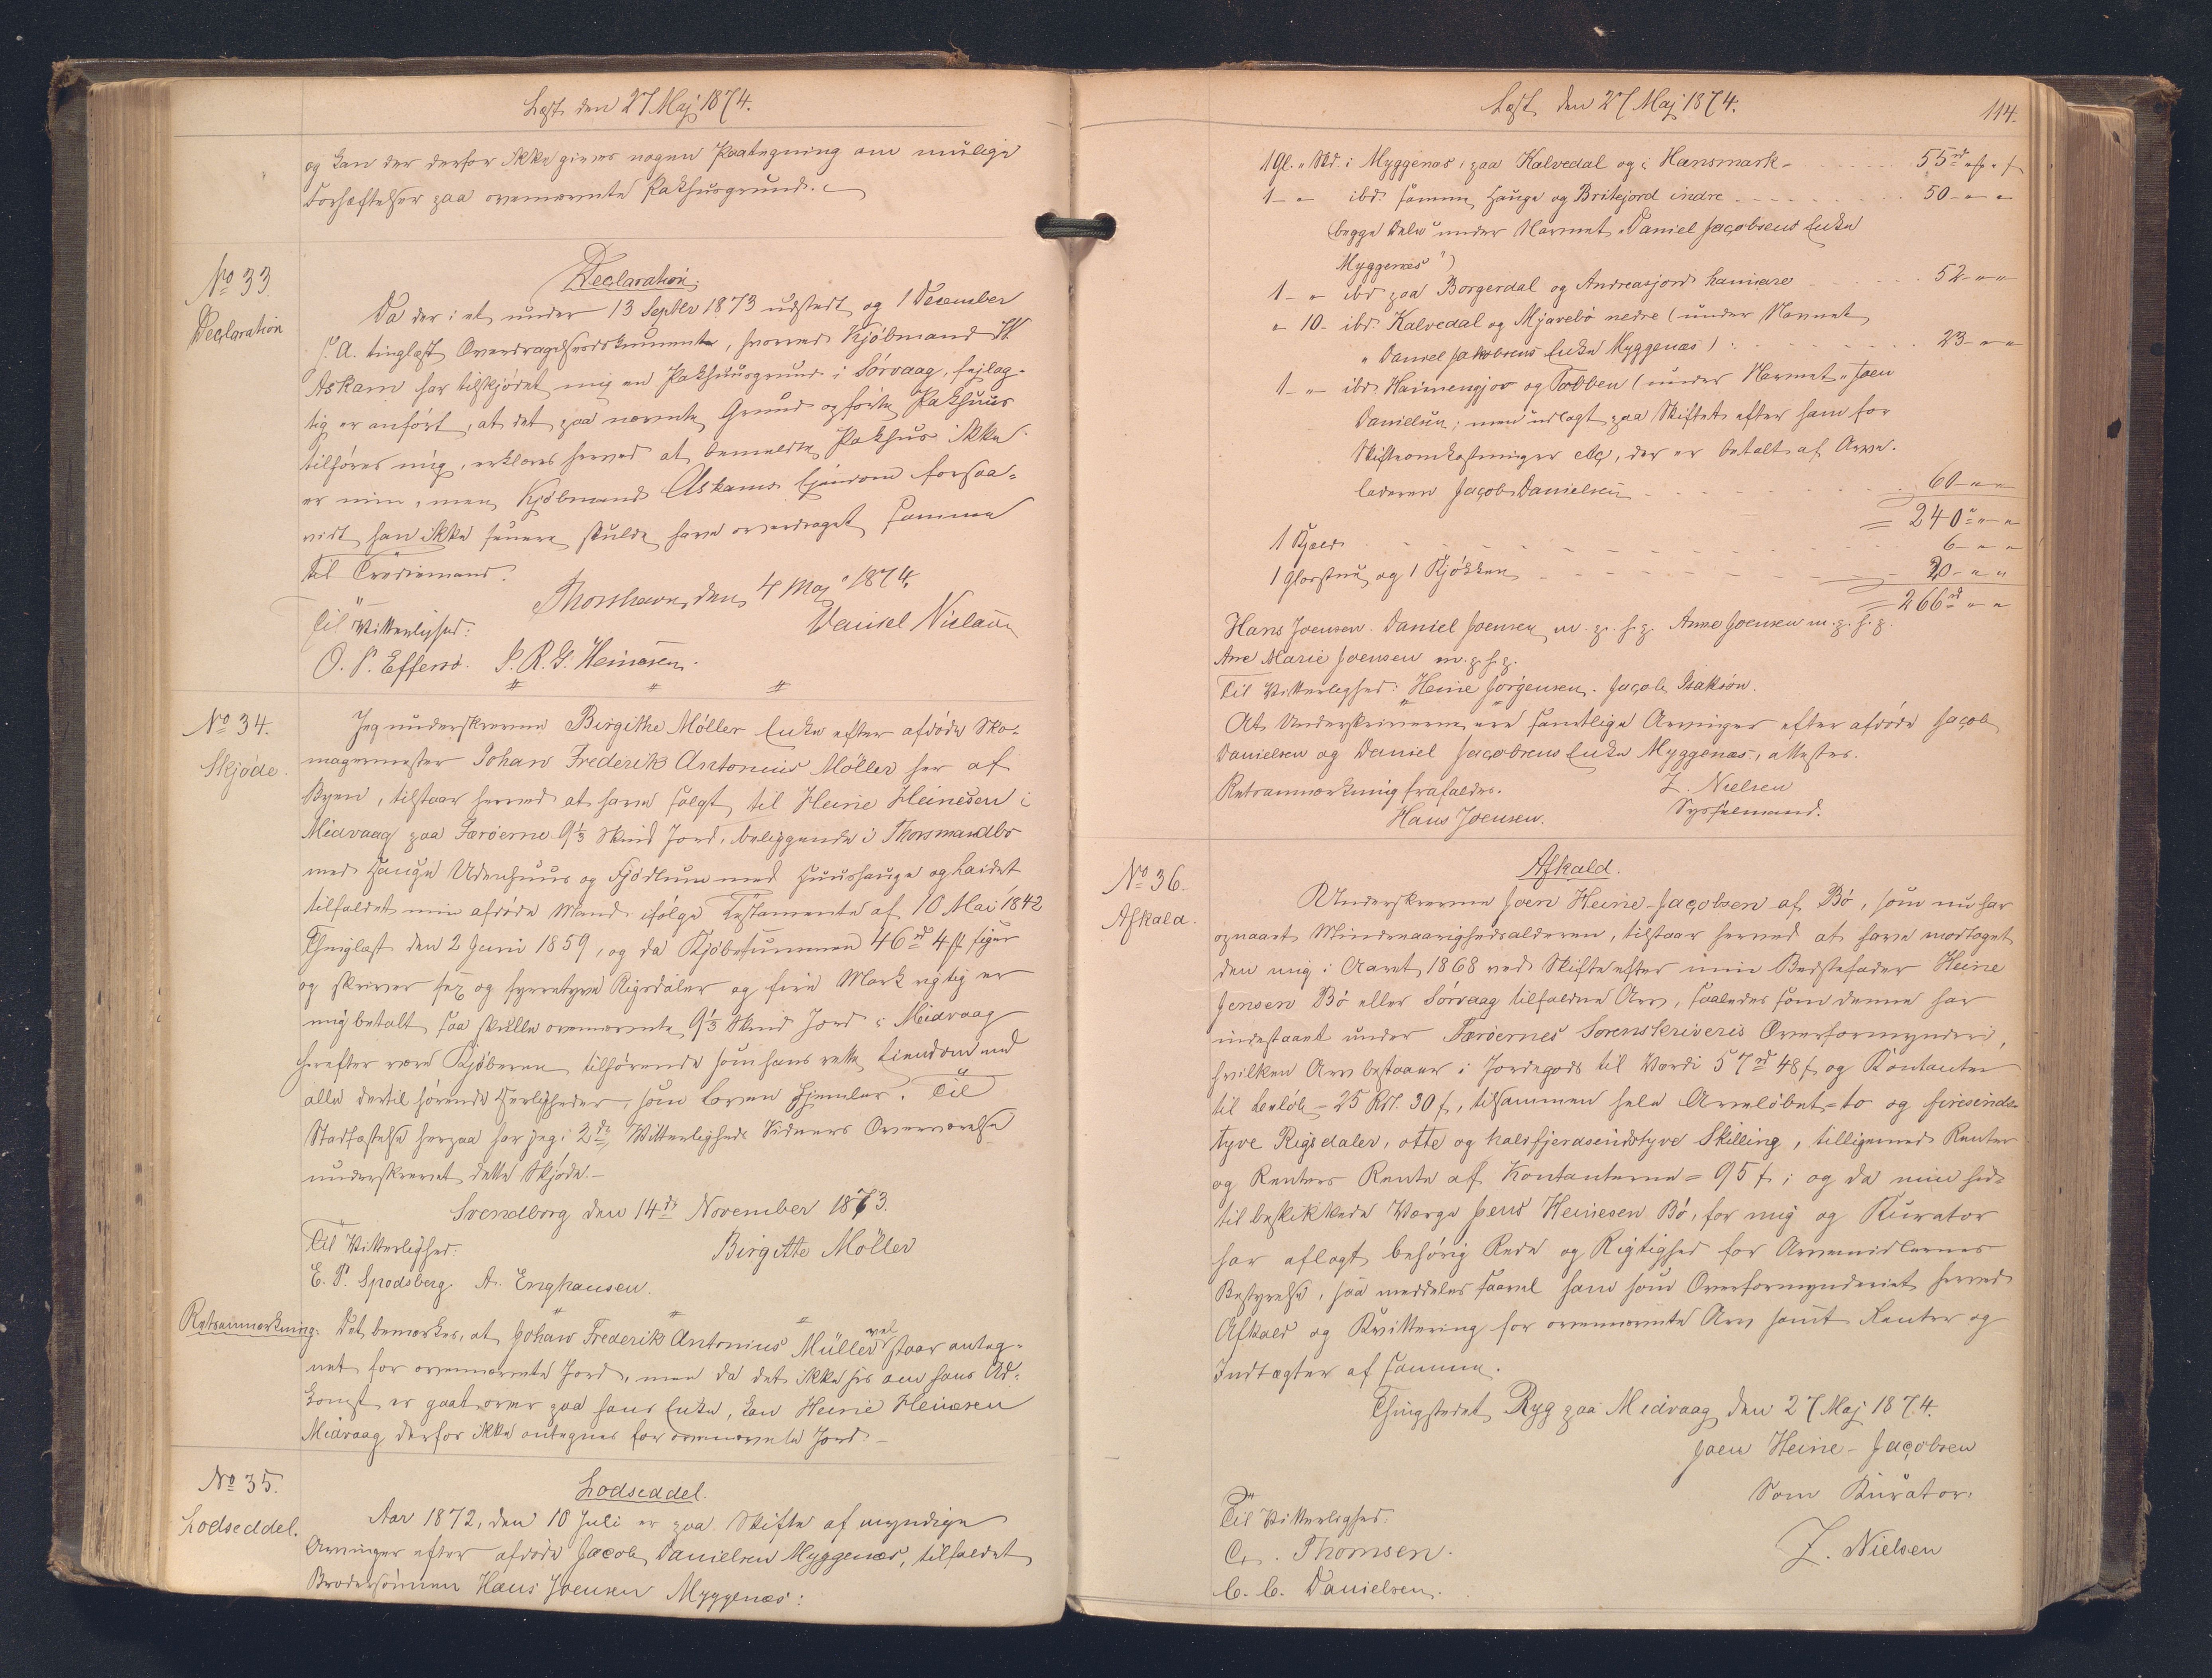 Læst den 27 Maj 1874.
og kan der derfor ikke gives nogen Paategning om mulige
Forhæftelser paa ovennævnte Pakhusgrund.
No 33.
Declaration
Declaration.
Da der i et under 13 Septbr 1873 udstedt og 1 December
s. A. tinglæst Overdragelsesdokument, hvorved Kjøbmand W
Askam har tilskjødet mig en Pakhuusgrund i Sørvaag, fejlag-
tig er anført, at det paa nævnte Grund opførte Pakhuus
tilhører mig, erklæres herved at bemeldte Pakhus ikke
er min, men Kjøbmand Askams Ejendom forsaa-
vidt han ikke senere skulde have overdraget samme
til Trediemand.
Thorshavn, den 4 Maj 1874.
Til Vitterlighed: Daniel Nielsen
O. P. Effersø. P. R. G. Heinesen.
No 34.
Skjøde.
Jeg underskrevne Birgithe Möller Enke efter afdøde Sko-
magermester Johan Frederik Antonius Möller her af
Byen, tilstaar herved at have solgt til Heine Heinesen i
Midvaag paa Færøerne 9⅓ Skind Jord, beliggende i Thorsmandbo
med Hauge Udenhuus og Hjødlum med Huushauge og Haidet
tilfaldet min afdøde Mand ifølge Testamente af 10 Mai 1842
Thinglæst den 2 Juni 1859, og da Kjøbesummen 46 rd 4 ꝟ siger
og skriver sex og fyrretyve Rigsdaler og fire Mark rigtig er
mig betalt, saa skulle ovennævnte 9⅓ Skind Jord i Midvaag
herefter være Kjøberen tilhørende som hans rette Eiendom med
alle dertil hørende Herligheder, som Loven hjemler. Til
Stadfæstelse herpaa har jeg i 2de Vitterligheds Vidners Overværelse
underskrevet dette Skjøde.-
Svendborg den 14de November 1873.
Til Vitterlighed: Birgitte Möller
E. P. Spodsberg. A. Enghausen.
Retsanmærkning: Det bemærkes, at Johan Frederik Antonius Müller vel staar anteg-
net for ovennævnte Jord, men da det ikke ses om hans Ad-
komst er gaaet over paa hans Enke, kan Heine Heinesen
Midvaag derfor ikke antegnes for ovennævnte Jord.-
No 35.
Lodseddel.
Lodseddel.
Aar 1872, den 10 Juli er paa Skifte af myndige
Arvinger efter afdøde Jacob Danielsen Myggenæs, tilfaldet
Brodersønnen Hans Joensen Myggenæs:
Læst den 27 Maj 1874.
114.
1 Gl. " Skd. i Myggenæs, paa Kalvedal og i Hansmark - 55 rd " ꝟ " s
1 - " ibd. samme Hauge og Britejord indre 50 - " "
(begge dele under Navnet "Daniel Jacobsens Enke
Myggenæs")
1 - " ibd paa Borgerdal og Andreasjord hamiare 52 - " "
" 10 - ibd. Kalvedal og Mjavebø nedre (under Navnet
"Daniel Jakobsens Enke Myggenæs") 23 - " "
1 - " ibd. Haimengjov og Tobben (under Navnet "Joen
Danielsen; men udlagt paa Skiftet efter ham for
Skifteomkostninger etc, der er betalt af Arve-
laderen Jacob Danielsen 60 - " "
= 240 " " "
1 Kjeld 6 - " "
1 Glasstue og 1 Kjøkken 20 - " "
= 266 rd " "
Hans Joensen. Daniel Joensen m. p. h. p. Anne Joensen m. p. h. p.
Ane Marie Joensen m. p. h. p.
Til Vitterlighed: Heine Jörgensen. Jacob Isaksen.
At Underskriverne ere samtlige Arvinger efter afdøde Jacob
Danielsen og Daniel Jacobsens Enke Myggenæs, attesteres.
Retsanmærkning frafaldes. Z. Nielsen
Hans Joensen. Sysselmand.
No 36.
Afkald.
Afkald.
Underskrevne Joen Heine-Jacobsen af Bø, som nu har
opnaaet Mindreaarighedsalderen, tilstaar herved at have modtaget
den mig i Aaret 1868 ved Skifte efter min Bedstefader Heine
Jensen Bø eller Sörvaag tilfaldne Arv, saaledes som denne har
indestaaet under Færøernes Sorenskriveris Overformynderi,
hvilken Arv bestaaer i Jordegods til Værdi 57 rd 48 s og Kontanter
til Beløb = 25 Rd. 30 s, tilsammen hele Arveløbet = to og firesinds-
tyve Rigsdaler, otte og halvfjerdsindstyve Skilling, tilligemed Renter
og Renters Rente af Kontanterne = 95 s; og da min hid-
til beskikkede Værge Jens Heinesen Bø, for mig og Kurator
har aflagt behørig Rede og Rigtighed for Arvemidlernes
Bestyrelse, saa meddeles saavel ham som Overformynderiet herved
Afkald og Kvittering for ovennævnte Arv samt Renter og
Indtægter af samme.
Thingstedet Ryg paa Midvaag den 27 Maj 1874.
Joen Heine-Jacobsen
Som Kurator.
Til Vitterlighed: Z. Nielsen
C. Thomsen.
C. C. Danielsen.